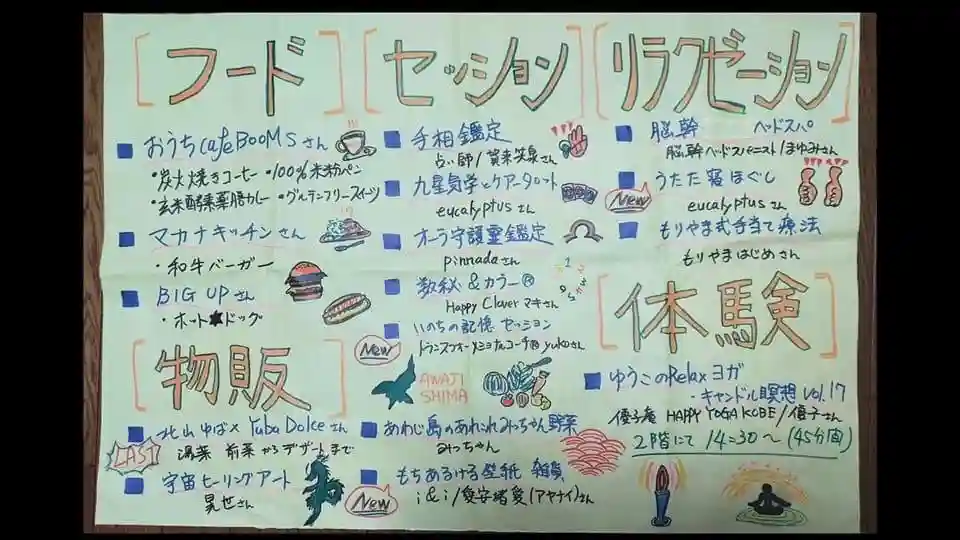 フード
おうちcafeBOOMSさん
・炭火焼きコーヒー ・100%米粉パン
・玄米酵素薬膳カレー ・グルテンフリースイーツ
マカナキッチンさん
・和牛バーガー
BIG UPさん
・ホットドッグ
物販
北山ゆば×Yuba Dolceさん
LAST
湯葉 前菜からデザートまで
宇宙ヒーリングアート
晃世さん
セッション
手相鑑定
占い師/賀来笑泉さん
九星気学とケアータロット
eucalyptusさん
オーラ守護霊鑑定
pinnadaさん
数秘&カラー®
Happy Clover マキさん
いのちの記憶 セッション
New
トランスフォーメーショナルコーチ® yukoさん
AWAJI
SHIMA
あわじ島のあれこれみっちゃん野菜
みっちゃん
もちあるける壁紙 雑貨
New
i&i/愛安堵愛(アヤナイ)さん
リラクゼーション
脳幹 ヘッドスパ
脳幹ヘッドスパニスト/まゆみさん
うたた寝ほぐし
New
eucalyptusさん
もりやま式手当て療法
もりやまはじめさん
体験
ゆうこのRelaxヨガ
・キャンドル瞑想 vol.17
優子庵 HAPPY YOGA KOBE/優子さん
2階にて 14:30〜(45分間)